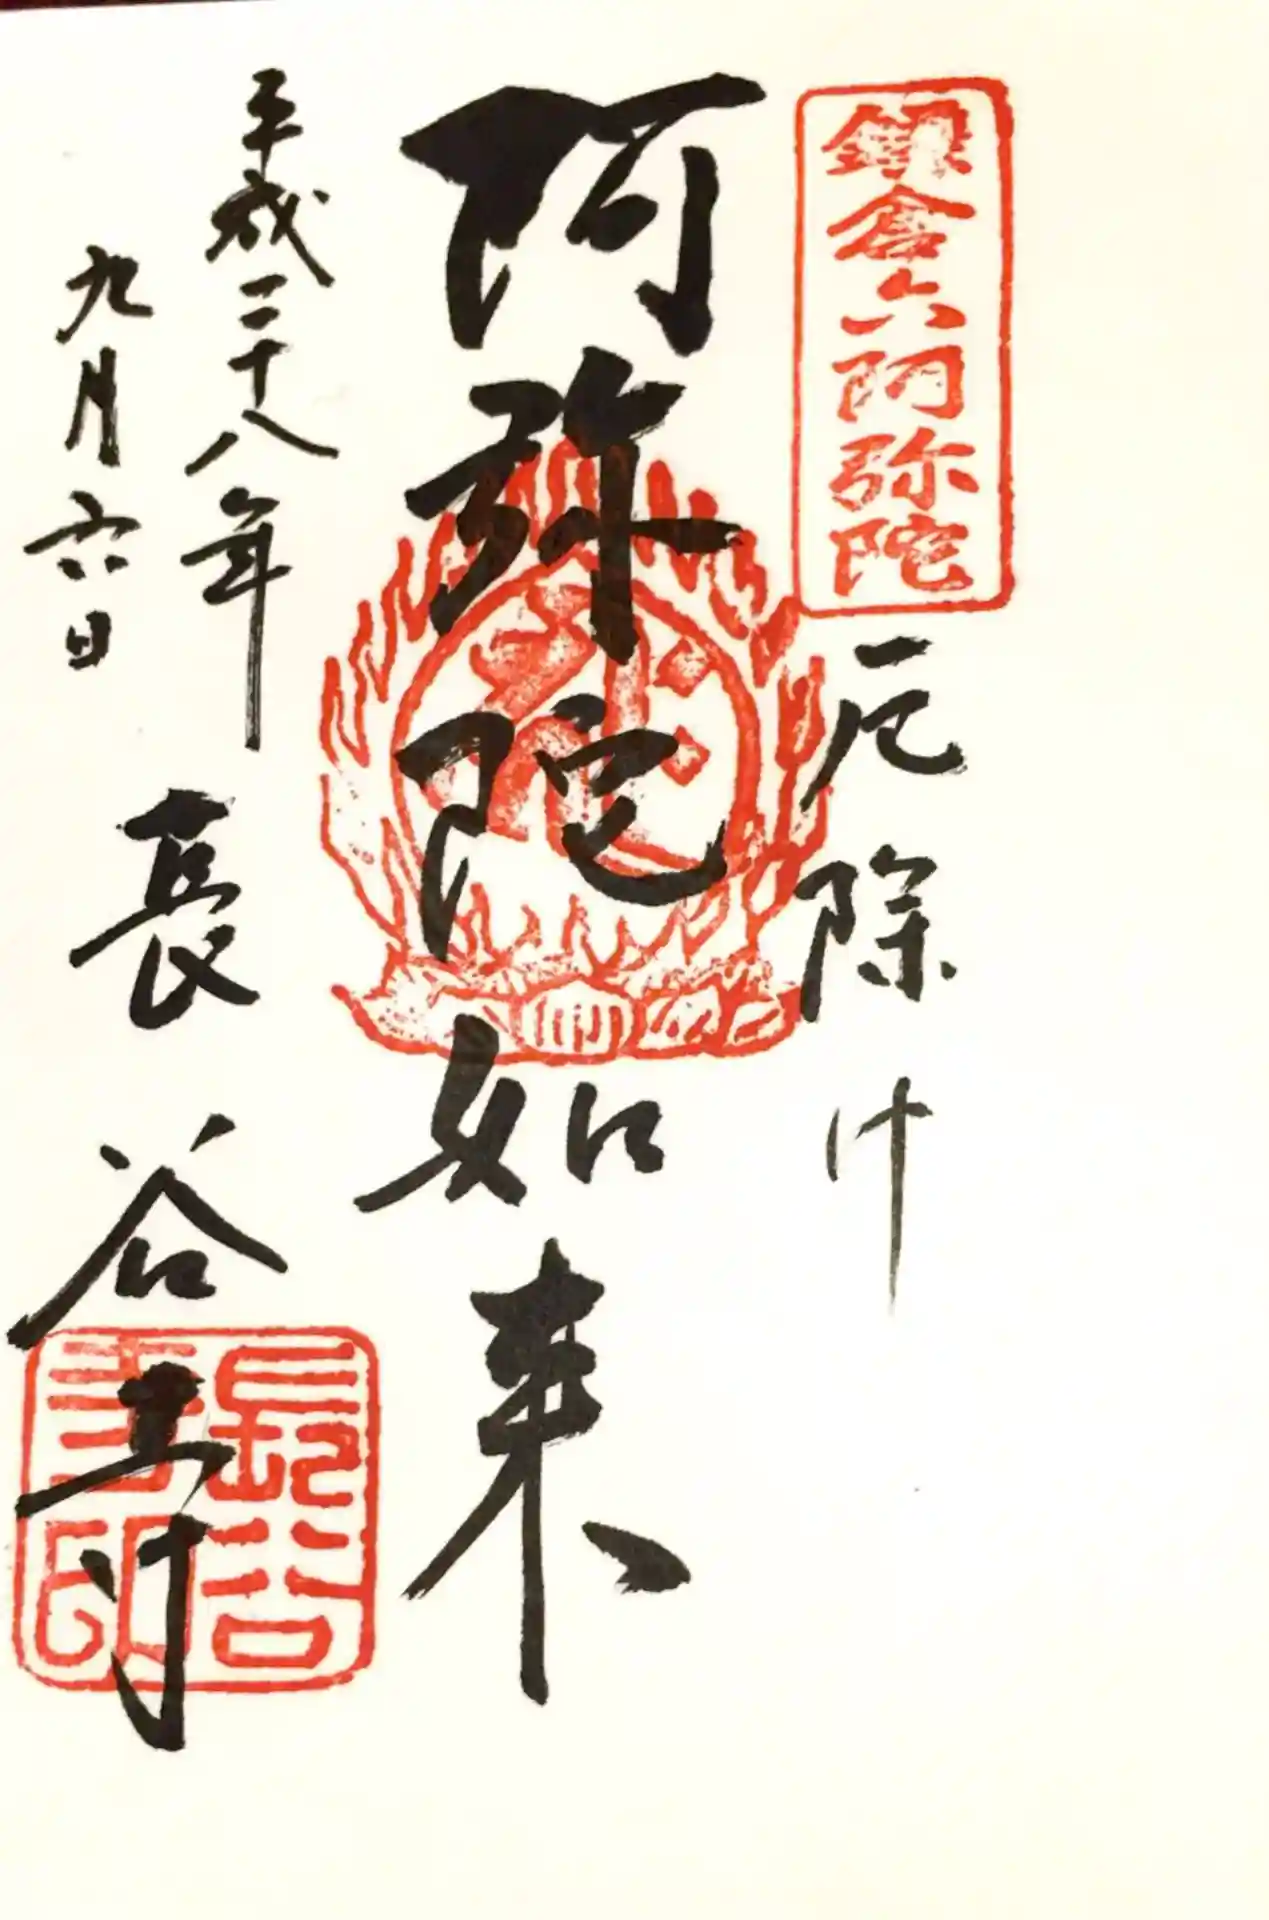 鎌倉六阿弥陀
厄除け
阿弥陀如来
平成二十八年
九月六日
長谷寺
長谷
寺印